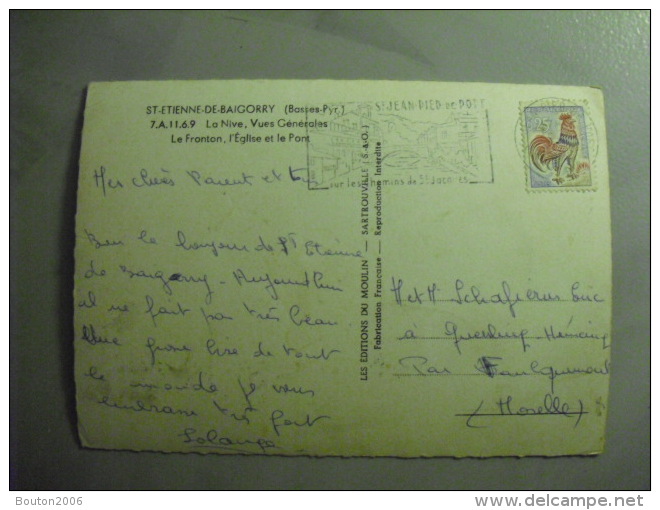 ST-ETIENNE-DE-BAIGORRY (Basses-Pyr.)
7.A.11.6.9 La Nive, Vues Générales
Le Fronton, l'Église et le Pont
ST JEAN PIED DE PORT
sur les chemins de St Jacques
Mes chers Parent et
Bien le bonjour de St Etienne
de Baigorry. Aujourd'hui
il ne fait pas très beau
Une grosse bise de tout
le monde je vous
embrasse très fort
Solange
LES ÉDITIONS DU MOULIN — SARTROUVILLE (S.-&-O.)
Fabrication Française — Reproduction Interdite
M et Mme
à
Par Faulquemont
(Moselle)
Bouton2006
delcampe.net